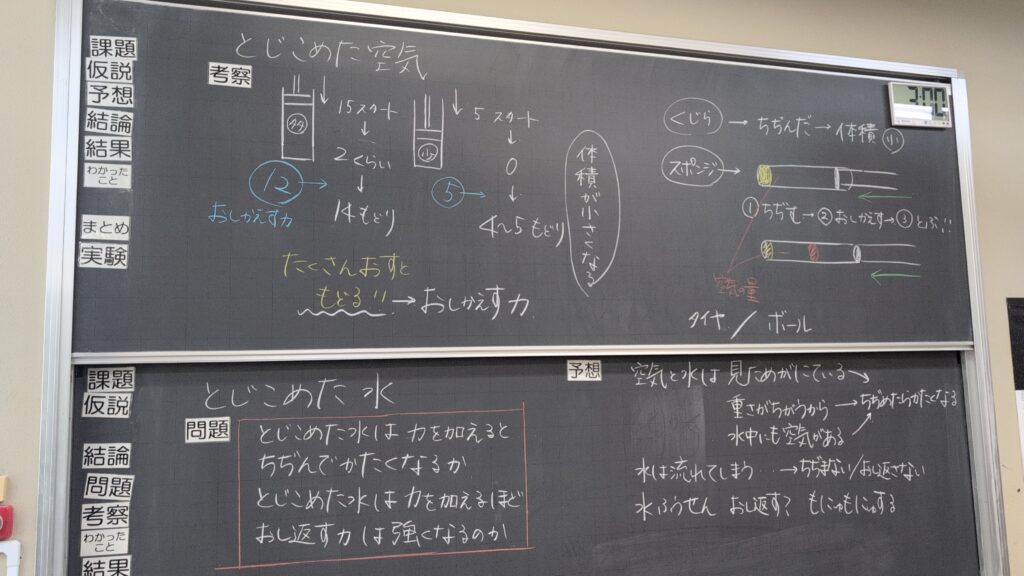 課題
仮説
予想
結論
結果
わかった
こと
まとめ
実験
とじこめた空気
考察
15 スタート
↓
2 くらい
↓
14 もどり
12 →
おしかえす力
5 スタート
↓
0
↓
4〜5 もどり
5 →
体積が小さくなる
たくさんおすと
もどる!! → おしかえす力
くじら → ちぢんだ → 体積 小
スポンジ →
① ちぢむ → ② おしかえす → ③ とぶ!!
空気の量
タイヤ / ボール
課題
仮説
結論
問題
考察
わかった
こと
結果
とじこめた 水
問題
とじこめた水は 力を加えると
ちぢんでかたくなるか
とじこめた水は力を加えるほど
おし返す力 は 強くなるのか
予想
空気と水は 見ためがにている
重さがちがうから → ちぢめたらかたくなる
水中にも空気がある
水は流れてしまう … → ちぢまない/おし返さない
水ふうせん おし返す? もにゅもにゅする